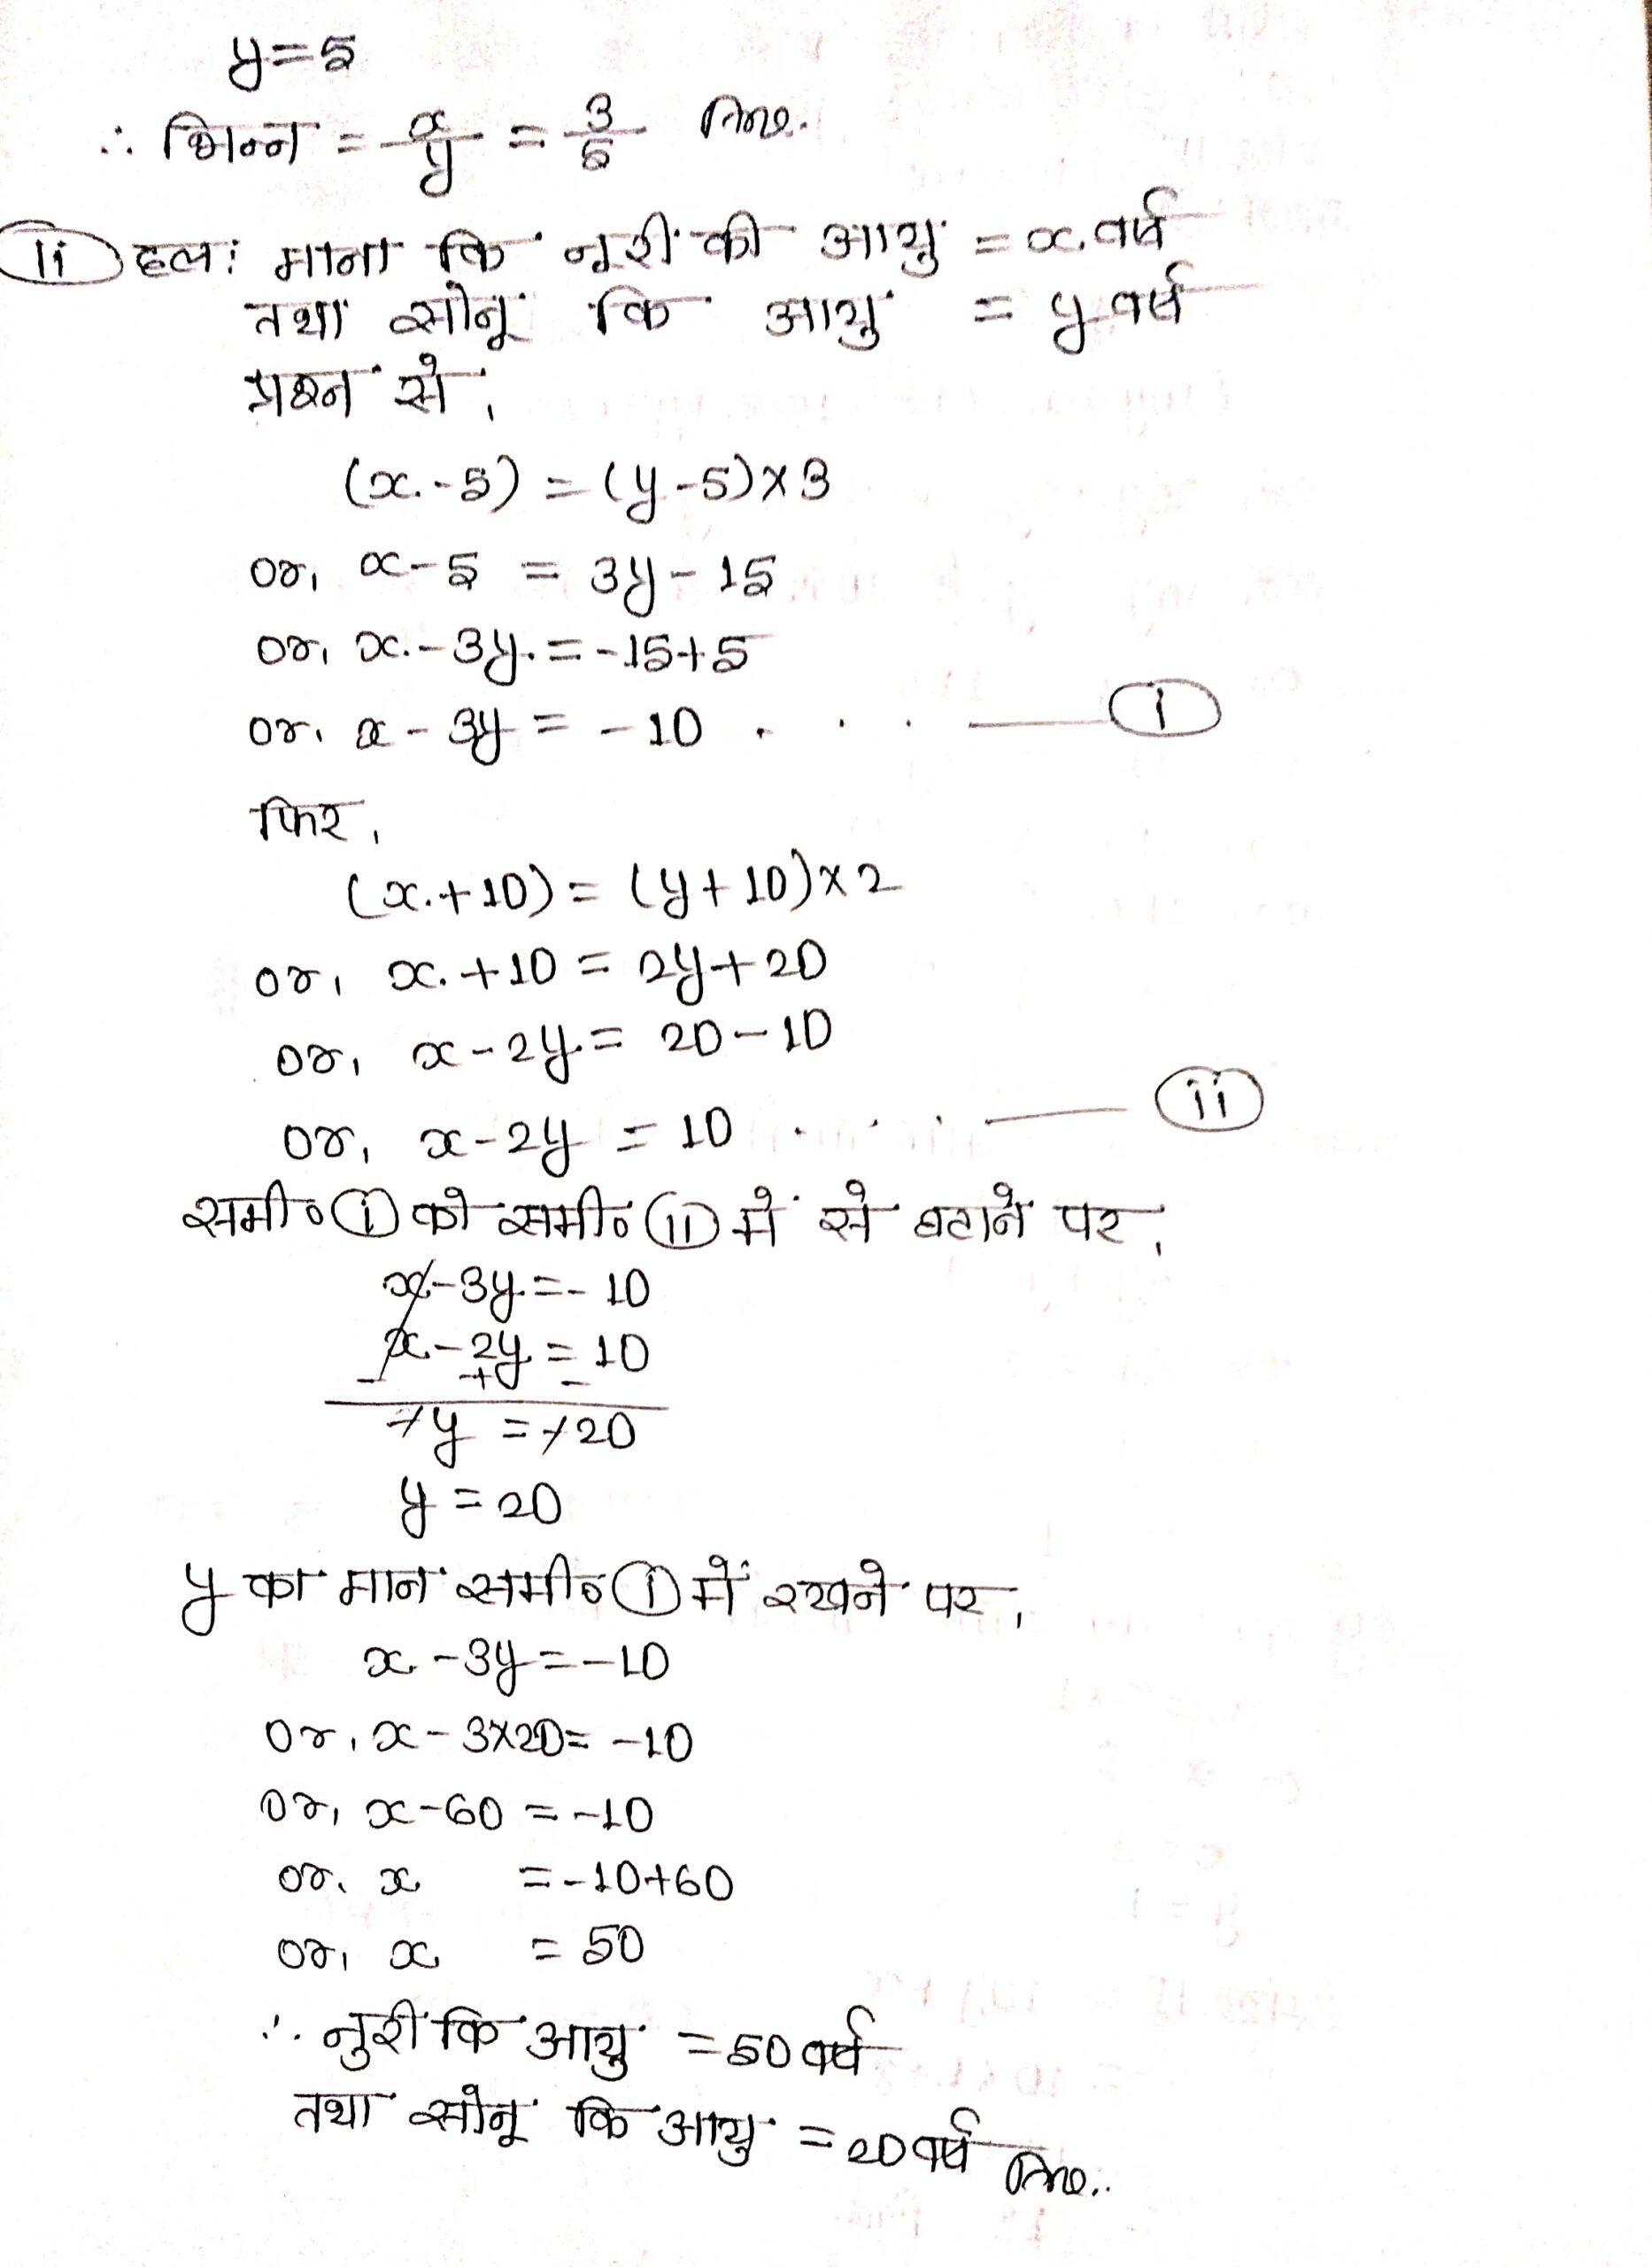 y=5
∴ भिन्न = x/y = 3/5 Ans.
(ii) हलः माना कि नूरी की आयु = x वर्ष
तथा सोनू कि आयु = y वर्ष
प्रश्न से,
(x-5) = (y-5)×3
or, x-5 = 3y-15
or, x-3y = -15+5
or, x-3y = -10 . . . — (i)
फिर,
(x+10) = (y+10)×2
or, x+10 = 2y+20
or, x-2y = 20-10
or, x-2y = 10 . . . — (ii)
समी० (i) को समी० (ii) में से घटाने पर,
x-3y = -10
x-2y = 10
- + -
-y = -20
y = 20
y का मान समी० (i) में रखने पर,
x-3y = -10
or, x-3×20 = -10
or, x-60 = -10
or, x = -10+60
or, x = 50
∴ नुरी कि आयु = 50 वर्ष
तथा सोनू कि आयु = 20 वर्ष Ans..